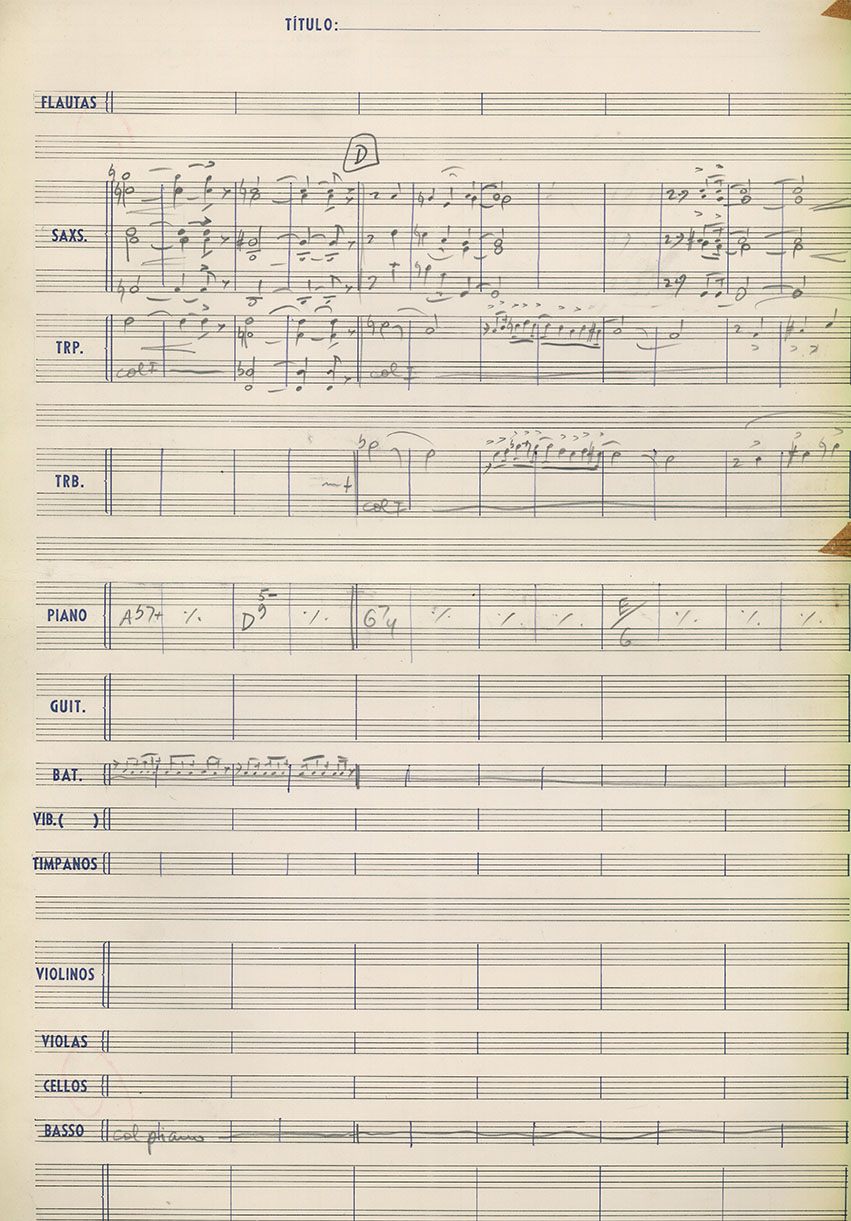 TÍTULO:
FLAUTAS
D
SAXS.
TRP.
col I
col I
TRB.
col I
PIANO
A57+ ٪ D 5- 9 ٪ G7 4 ٪ ٪ ٪ E/G ٪ ٪ ٪
GUIT.
BAT.
VIB.( )
TIMPANOS
VIOLINOS
VIOLAS
CELLOS
BASSO
col piano